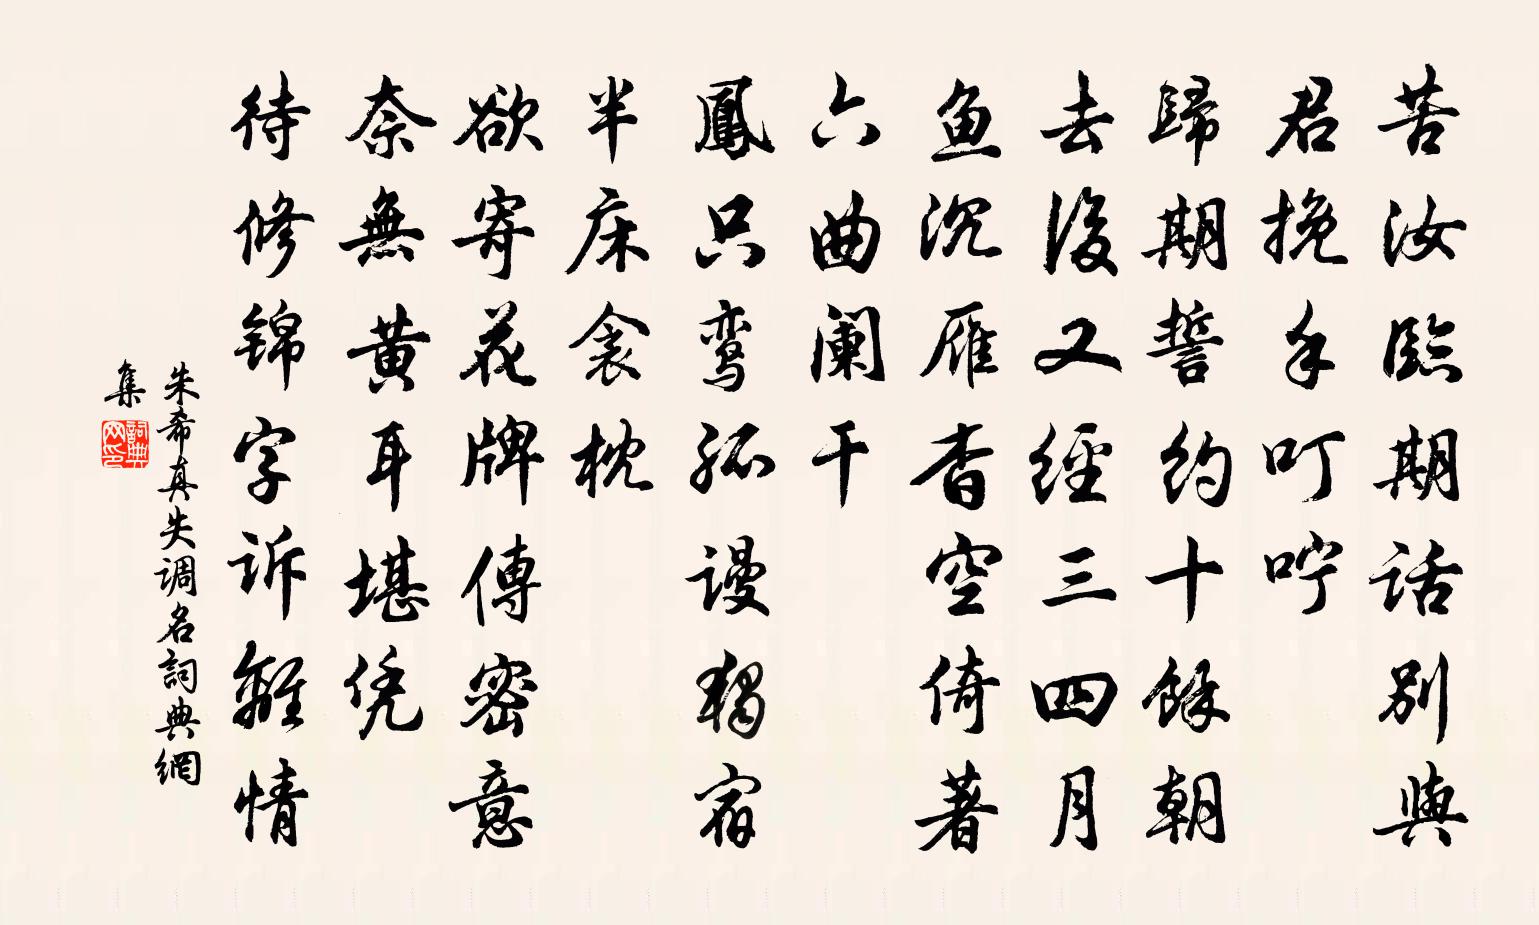 苦汝臨期話別與
君挽手叮咛
歸期誓約十餘朝
去後又經三四月
鱼沉雁杳空倚著
六曲阑干
鳳只鸾孤谩獨宿
半床衾枕
欲寄花牋傳密意
奈無黄耳堪凭
待修锦字訴離情
朱希真失调名詞典網
集
詞典
网印